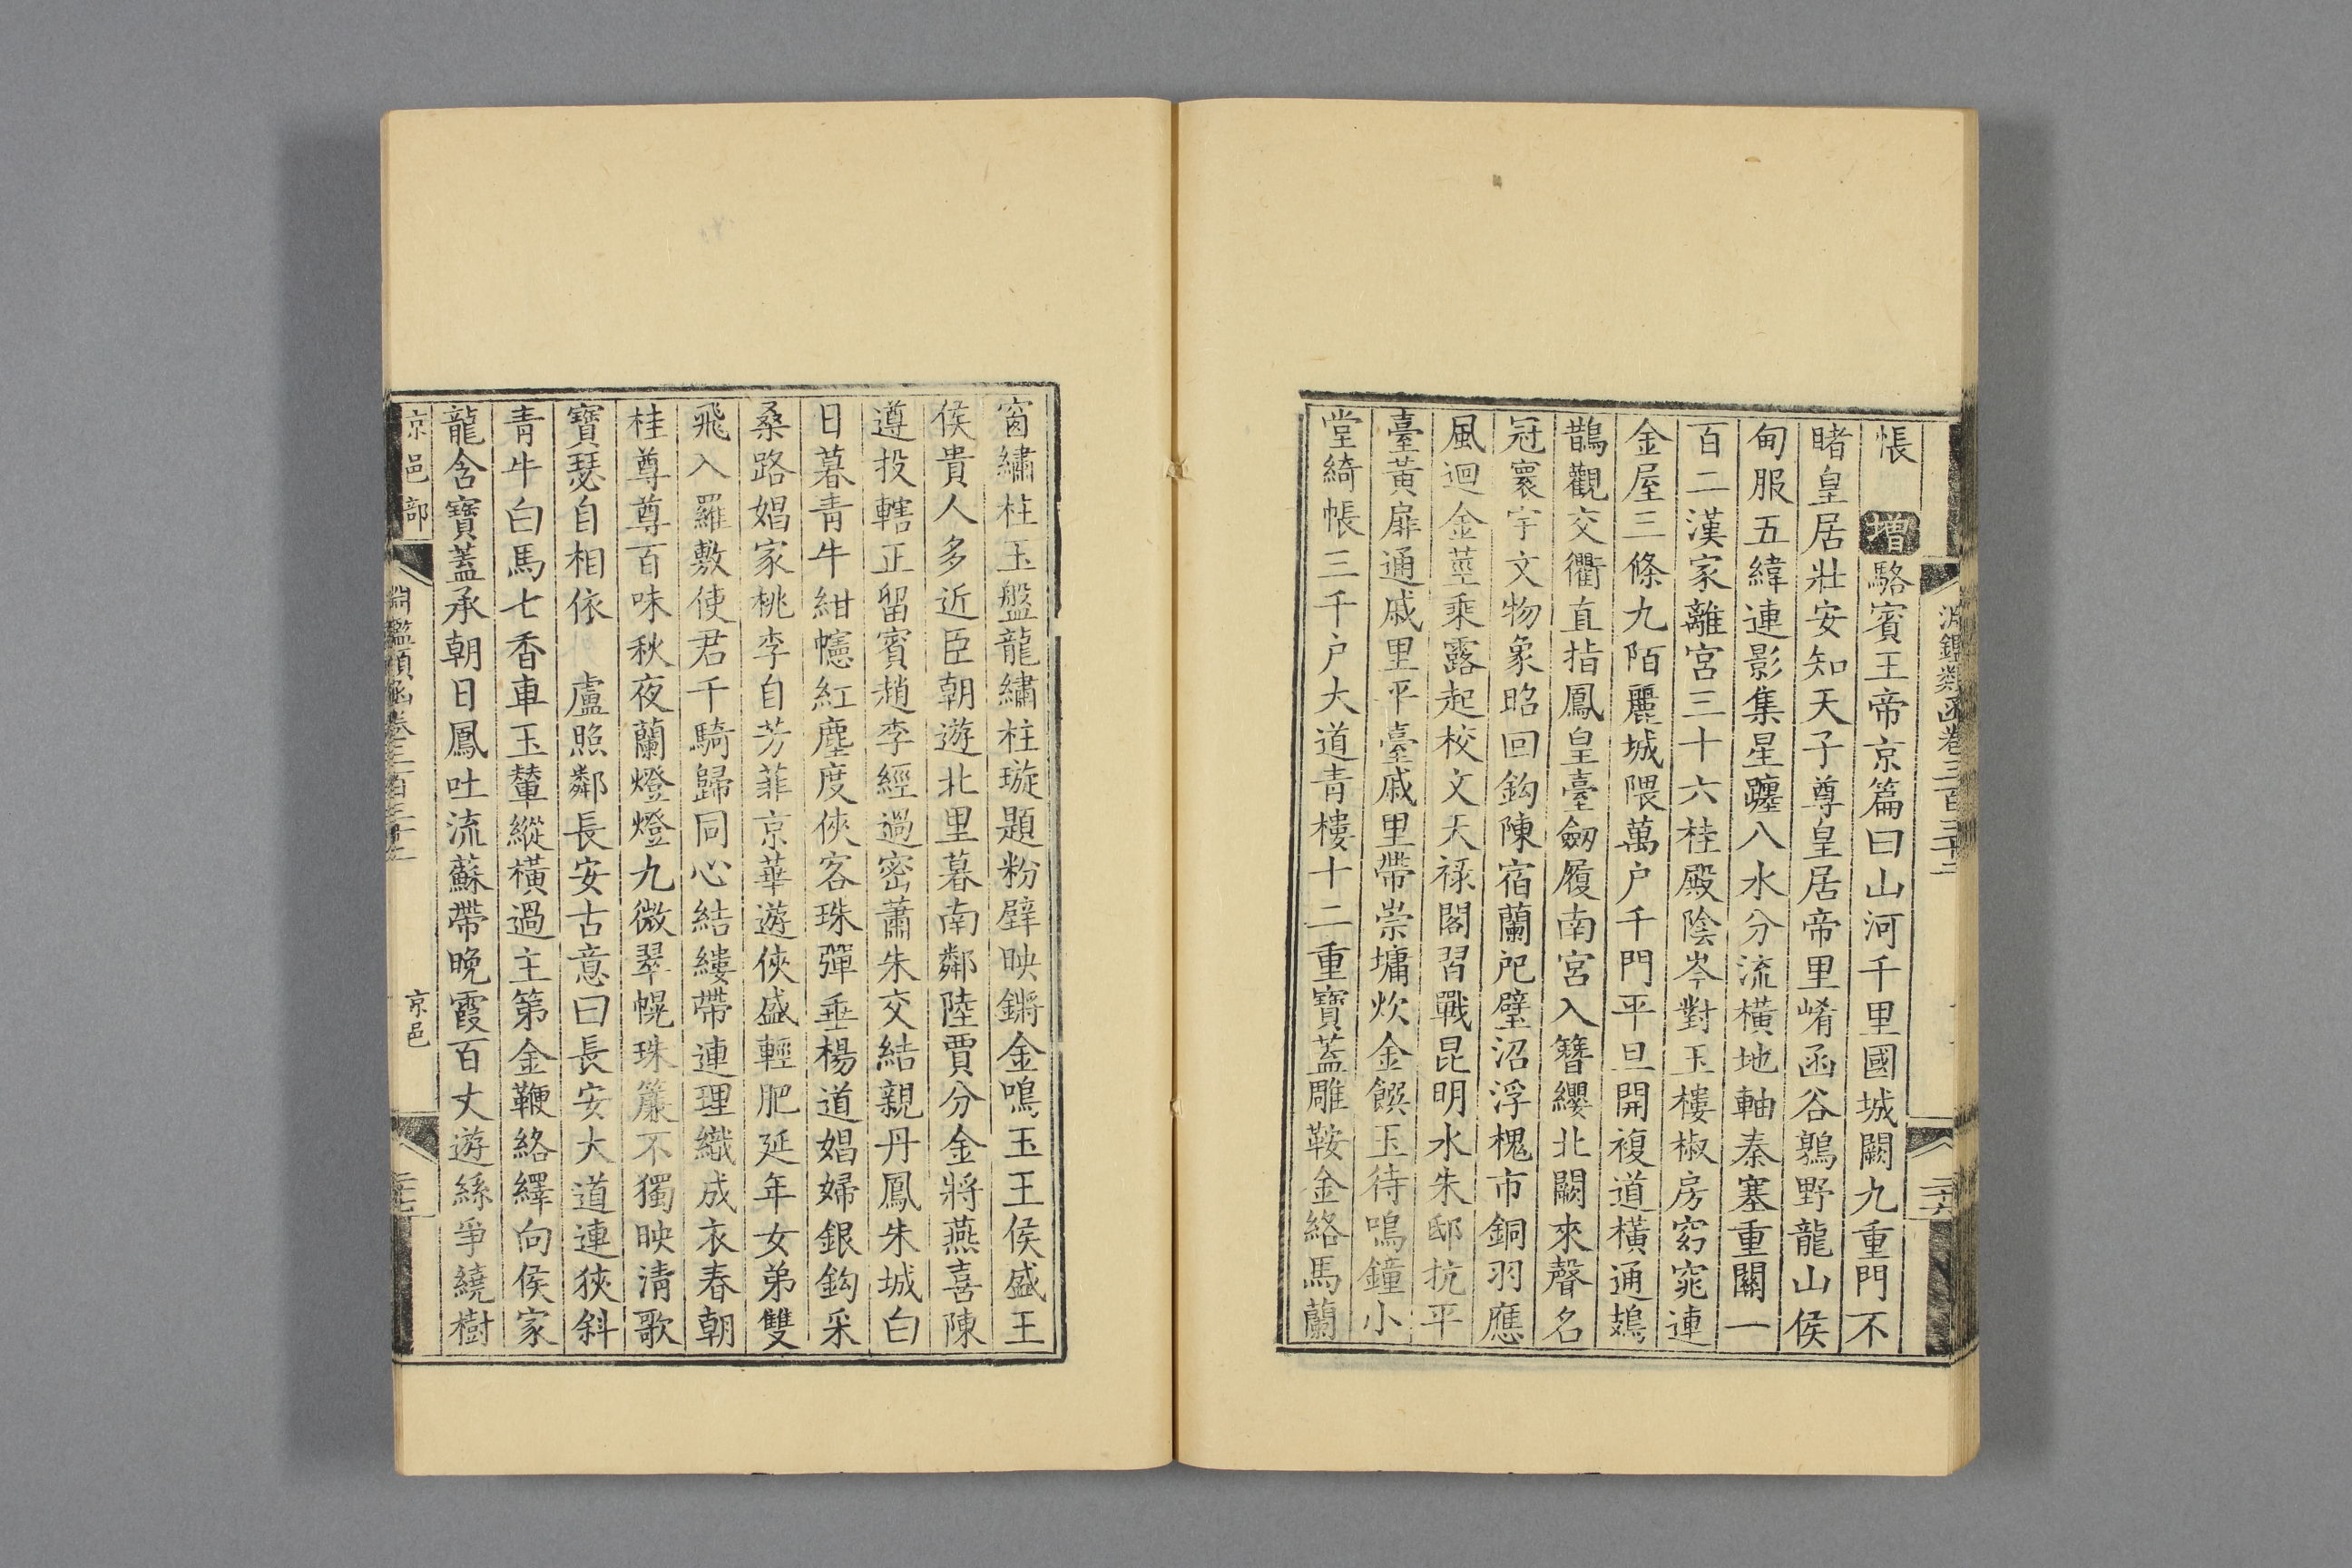 帳 增 駱賓王帝京篇曰山河千里國城闕九重門不
睹皇居壯安知天子尊皇居帝里崤函谷鶉野龍山侯
甸服五緯連影集星躔八水分流橫地軸秦塞重關一
百二漢家離宮三十六桂殿陰岑對玉樓椒房窈窕連
金屋三條九陌麗城隈萬户千門平旦開複道橫通鳷
鵲觀交衢直指鳳皇臺劒履南宮入簪纓北闕來聲名
冠寰宇文物象昭回鈎陳宿蘭戺璧沼浮槐市銅羽應
風迴金莖乘露起校文天祿閣習戰昆明水朱邸抗平
臺黃扉通戚里平臺戚里帶崇墉炊金饌玉待鳴鐘小
堂綺帳三千户大道青樓十二重寶蓋雕鞍金絡馬蘭
窗繡柱玉盤龍繡柱璇題粉壁映鏘金鳴玉王侯盛王
侯貴人多近臣朝遊北里暮南鄰陸賈分金將燕喜陳
遵投轄正留賓趙李經過密蕭朱交結親丹鳳朱城白
日暮青牛紺幰紅塵度俠客珠彈垂楊道娼婦銀鈎采
桑路娼家桃李自芳菲京華遊俠盛輕肥延年女弟雙
飛入羅敷使君千騎歸同心結縷帶連理織成衣春朝
桂尊尊百味秋夜蘭燈燈九微翠幌珠簾不獨映清歌
寶瑟自相依 盧照鄰長安古意曰長安大道連狹斜
青牛白馬七香車玉輦縱橫過主第金鞭絡繹向侯家
龍含寶蓋承朝日鳳吐流蘇帶晚霞百丈遊絲爭繞樹
京邑部 淵鑑類函卷三百三十三 京邑